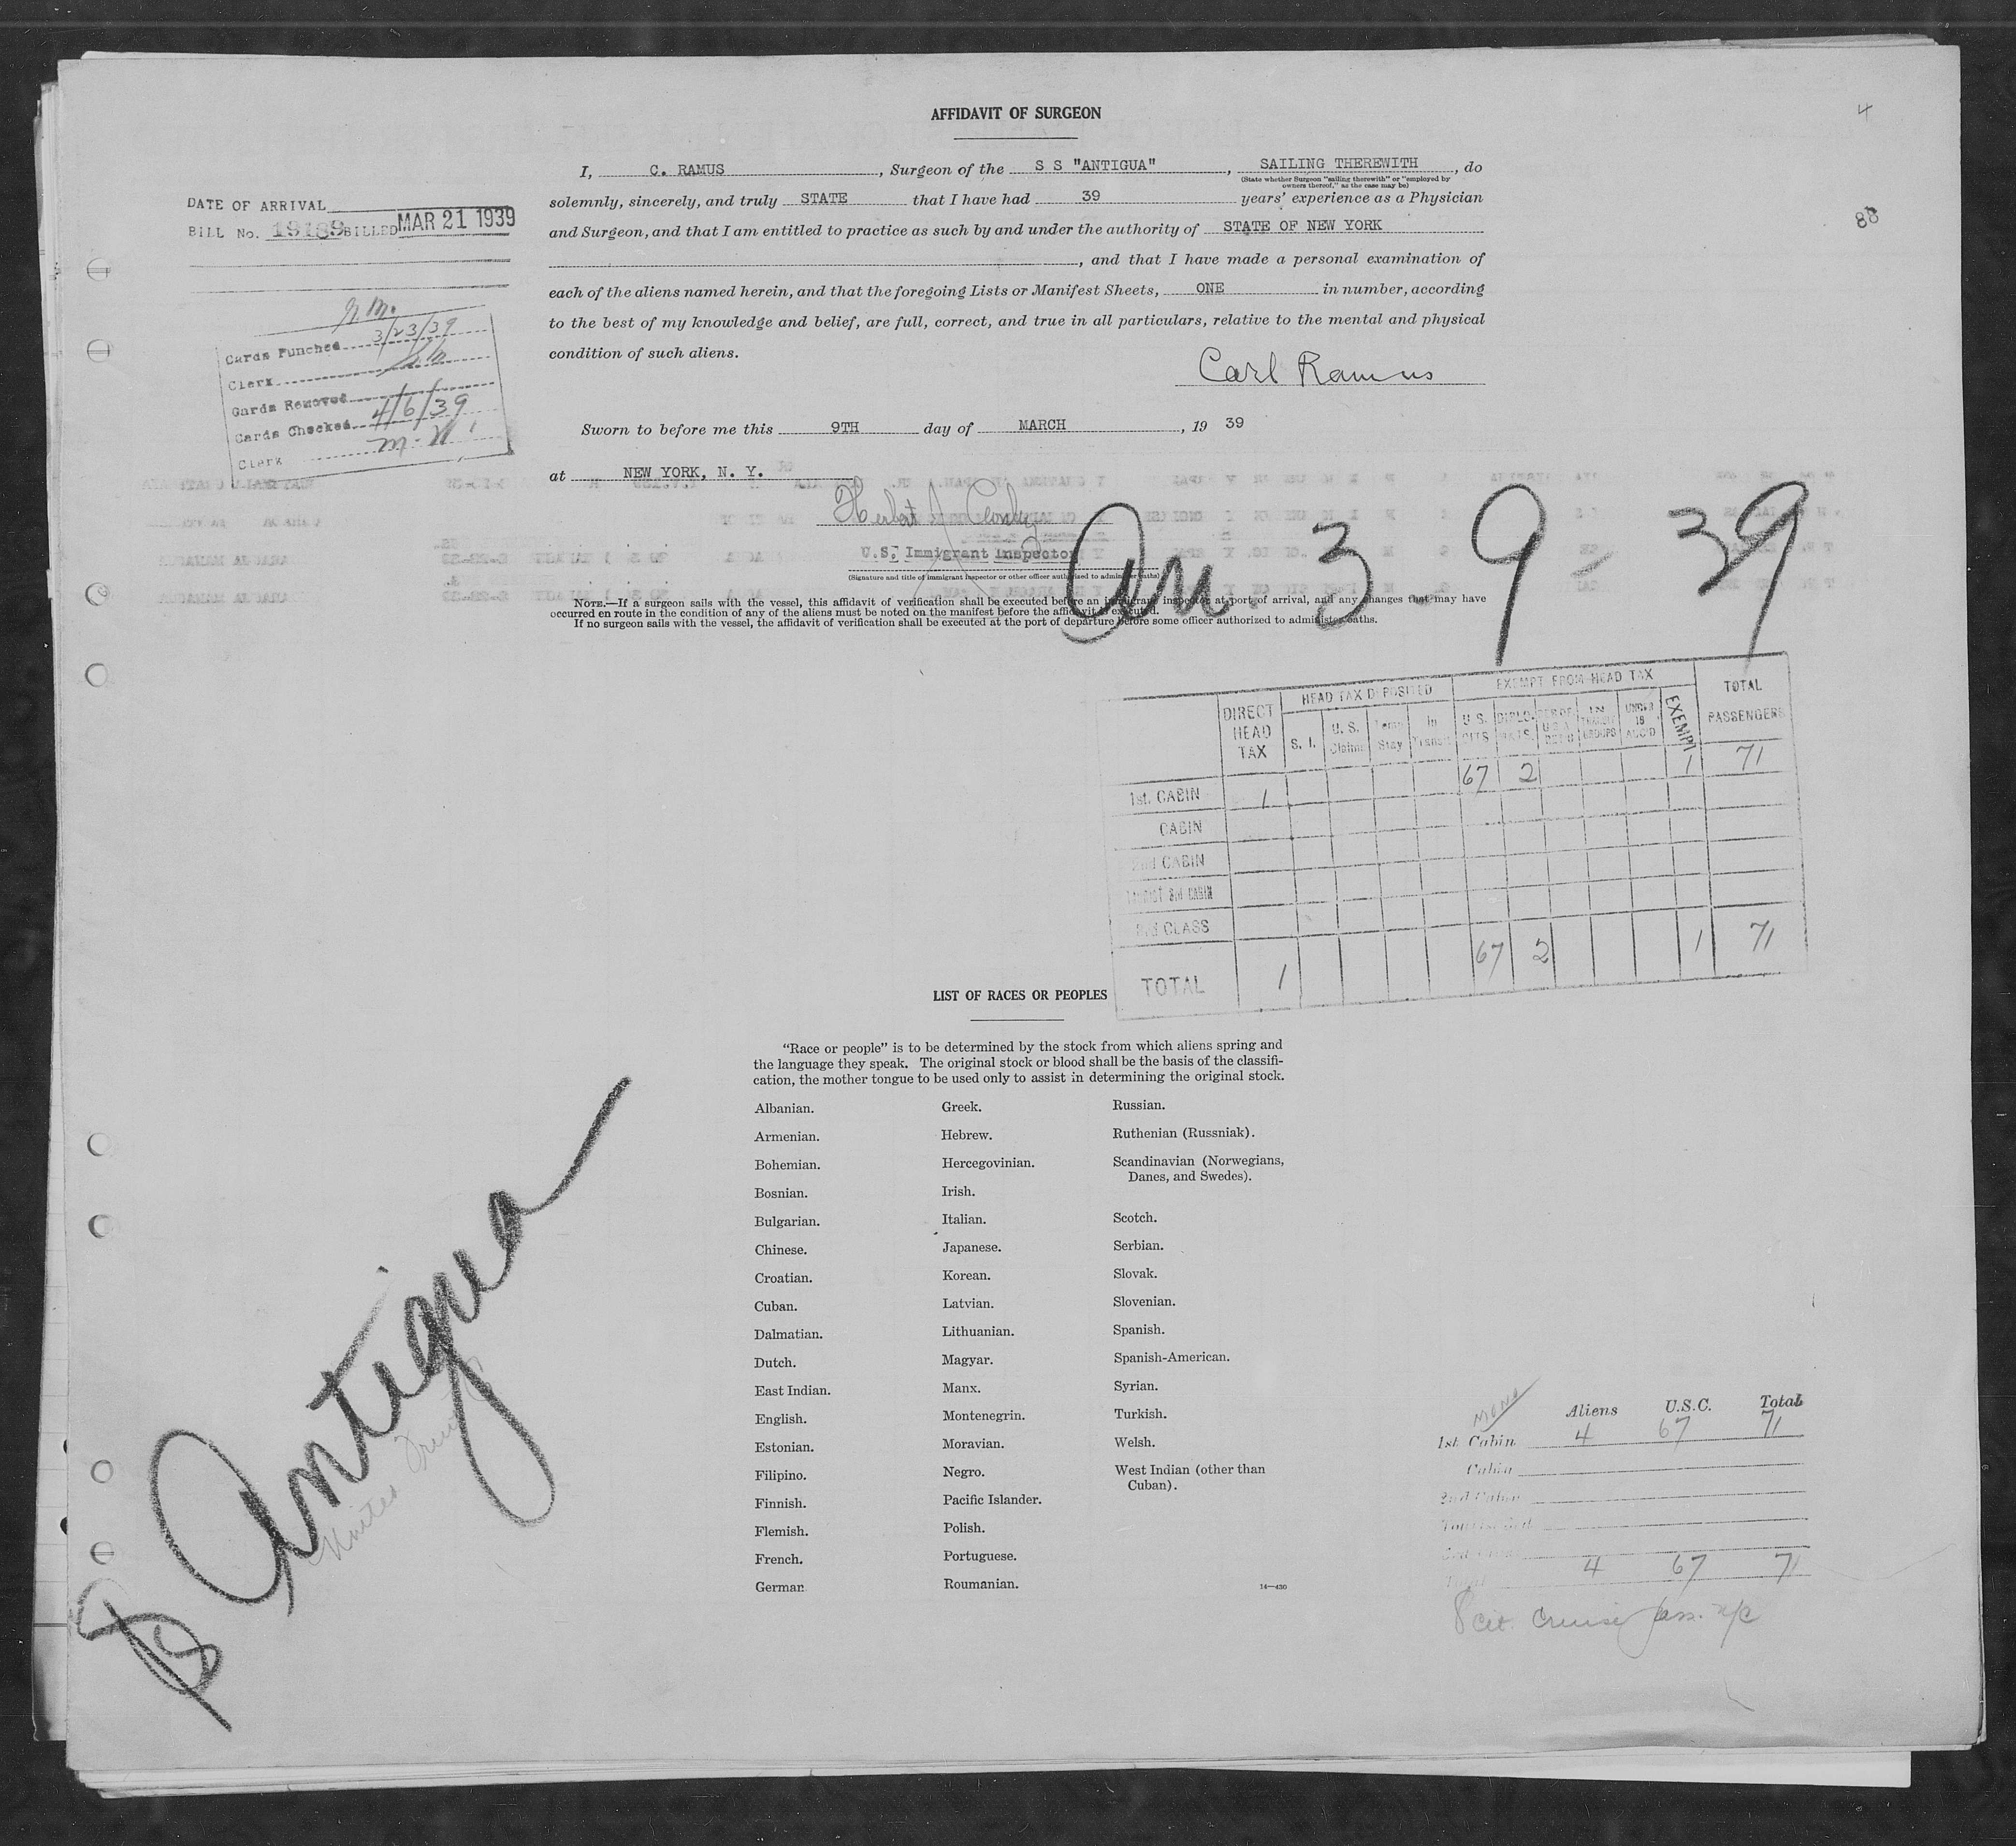 AFFIDAVIT OF SURGEON
4
I, C. RAMUS, Surgeon of the S S "ANTIGUA", SAILING THEREWITH, do
(State whether Surgeon "sailing therewith" or "employed by
owners thereof," as the case may be)
solemnly, sincerely, and truly STATE that I have had 39 years' experience as a Physician
and Surgeon, and that I am entitled to practice as such by and under the authority of STATE OF NEW YORK
, and that I have made a personal examination of
each of the aliens named herein, and that the foregoing Lists or Manifest Sheets, ONE in number, according
to the best of my knowledge and belief, are full, correct, and true in all particulars, relative to the mental and physical
condition of such aliens.
Carl Ramus
DATE OF ARRIVAL
BILL No. 19189 BILLED MAR 21 1939
88
3/23/39
Cards Punched
Clerk
Cards Removed
Cards Checked 4/6/39
Clerk
Sworn to before me this 9TH day of MARCH, 19 39
at NEW YORK, N. Y.
Herbert J
U.S. Immigrant Inspector
(Signature and title of immigrant inspector or other officer authorized to administer oaths)
Arr. 3 - 9 - 39
NOTE.—If a surgeon sails with the vessel, this affidavit of verification shall be executed before an immigrant inspector at port of arrival, and any changes that may have
occurred en route in the condition of any of the aliens must be noted on the manifest before the affidavit is executed.
If no surgeon sails with the vessel, the affidavit of verification shall be executed at the port of departure before some officer authorized to administer oaths.
HEAD TAX DEPOSITED EXEMPT FROM HEAD TAX TOTAL PASSENGERS
DIRECT HEAD TAX S. I. U. S. Claims Temp Stay In Transit U. S. CITS DIPLO. IN TRANSIT GROUPS UNDER 16 EXEMPT
1st. CABIN 1 67 2 1 71
CABIN
2nd CABIN
TOURIST 3rd CABIN
3rd CLASS
TOTAL 1 67 2 1 71
LIST OF RACES OR PEOPLES
"Race or people" is to be determined by the stock from which aliens spring and
the language they speak. The original stock or blood shall be the basis of the classifi-
cation, the mother tongue to be used only to assist in determining the original stock.
Albanian.
Armenian.
Bohemian.
Bosnian.
Bulgarian.
Chinese.
Croatian.
Cuban.
Dalmatian.
Dutch.
East Indian.
English.
Estonian.
Filipino.
Finnish.
Flemish.
French.
German
Greek.
Hebrew.
Hercegovinian.
Irish.
Italian.
Japanese.
Korean.
Latvian.
Lithuanian.
Magyar.
Manx.
Montenegrin.
Moravian.
Negro.
Pacific Islander.
Polish.
Portuguese.
Roumanian.
Russian.
Ruthenian (Russniak).
Scandinavian (Norwegians,
Danes, and Swedes).
Scotch.
Serbian.
Slovak.
Slovenian.
Spanish.
Spanish-American.
Syrian.
Turkish.
Welsh.
West Indian (other than
Cuban).
14—430
SS Antigua
United Fruit
Aliens U.S.C. Total
1st Cabin 4 67 71
Cabin
2nd Cabin
Tourist 3rd
Total 4 67 71
8 cit. cruise pass. n/c